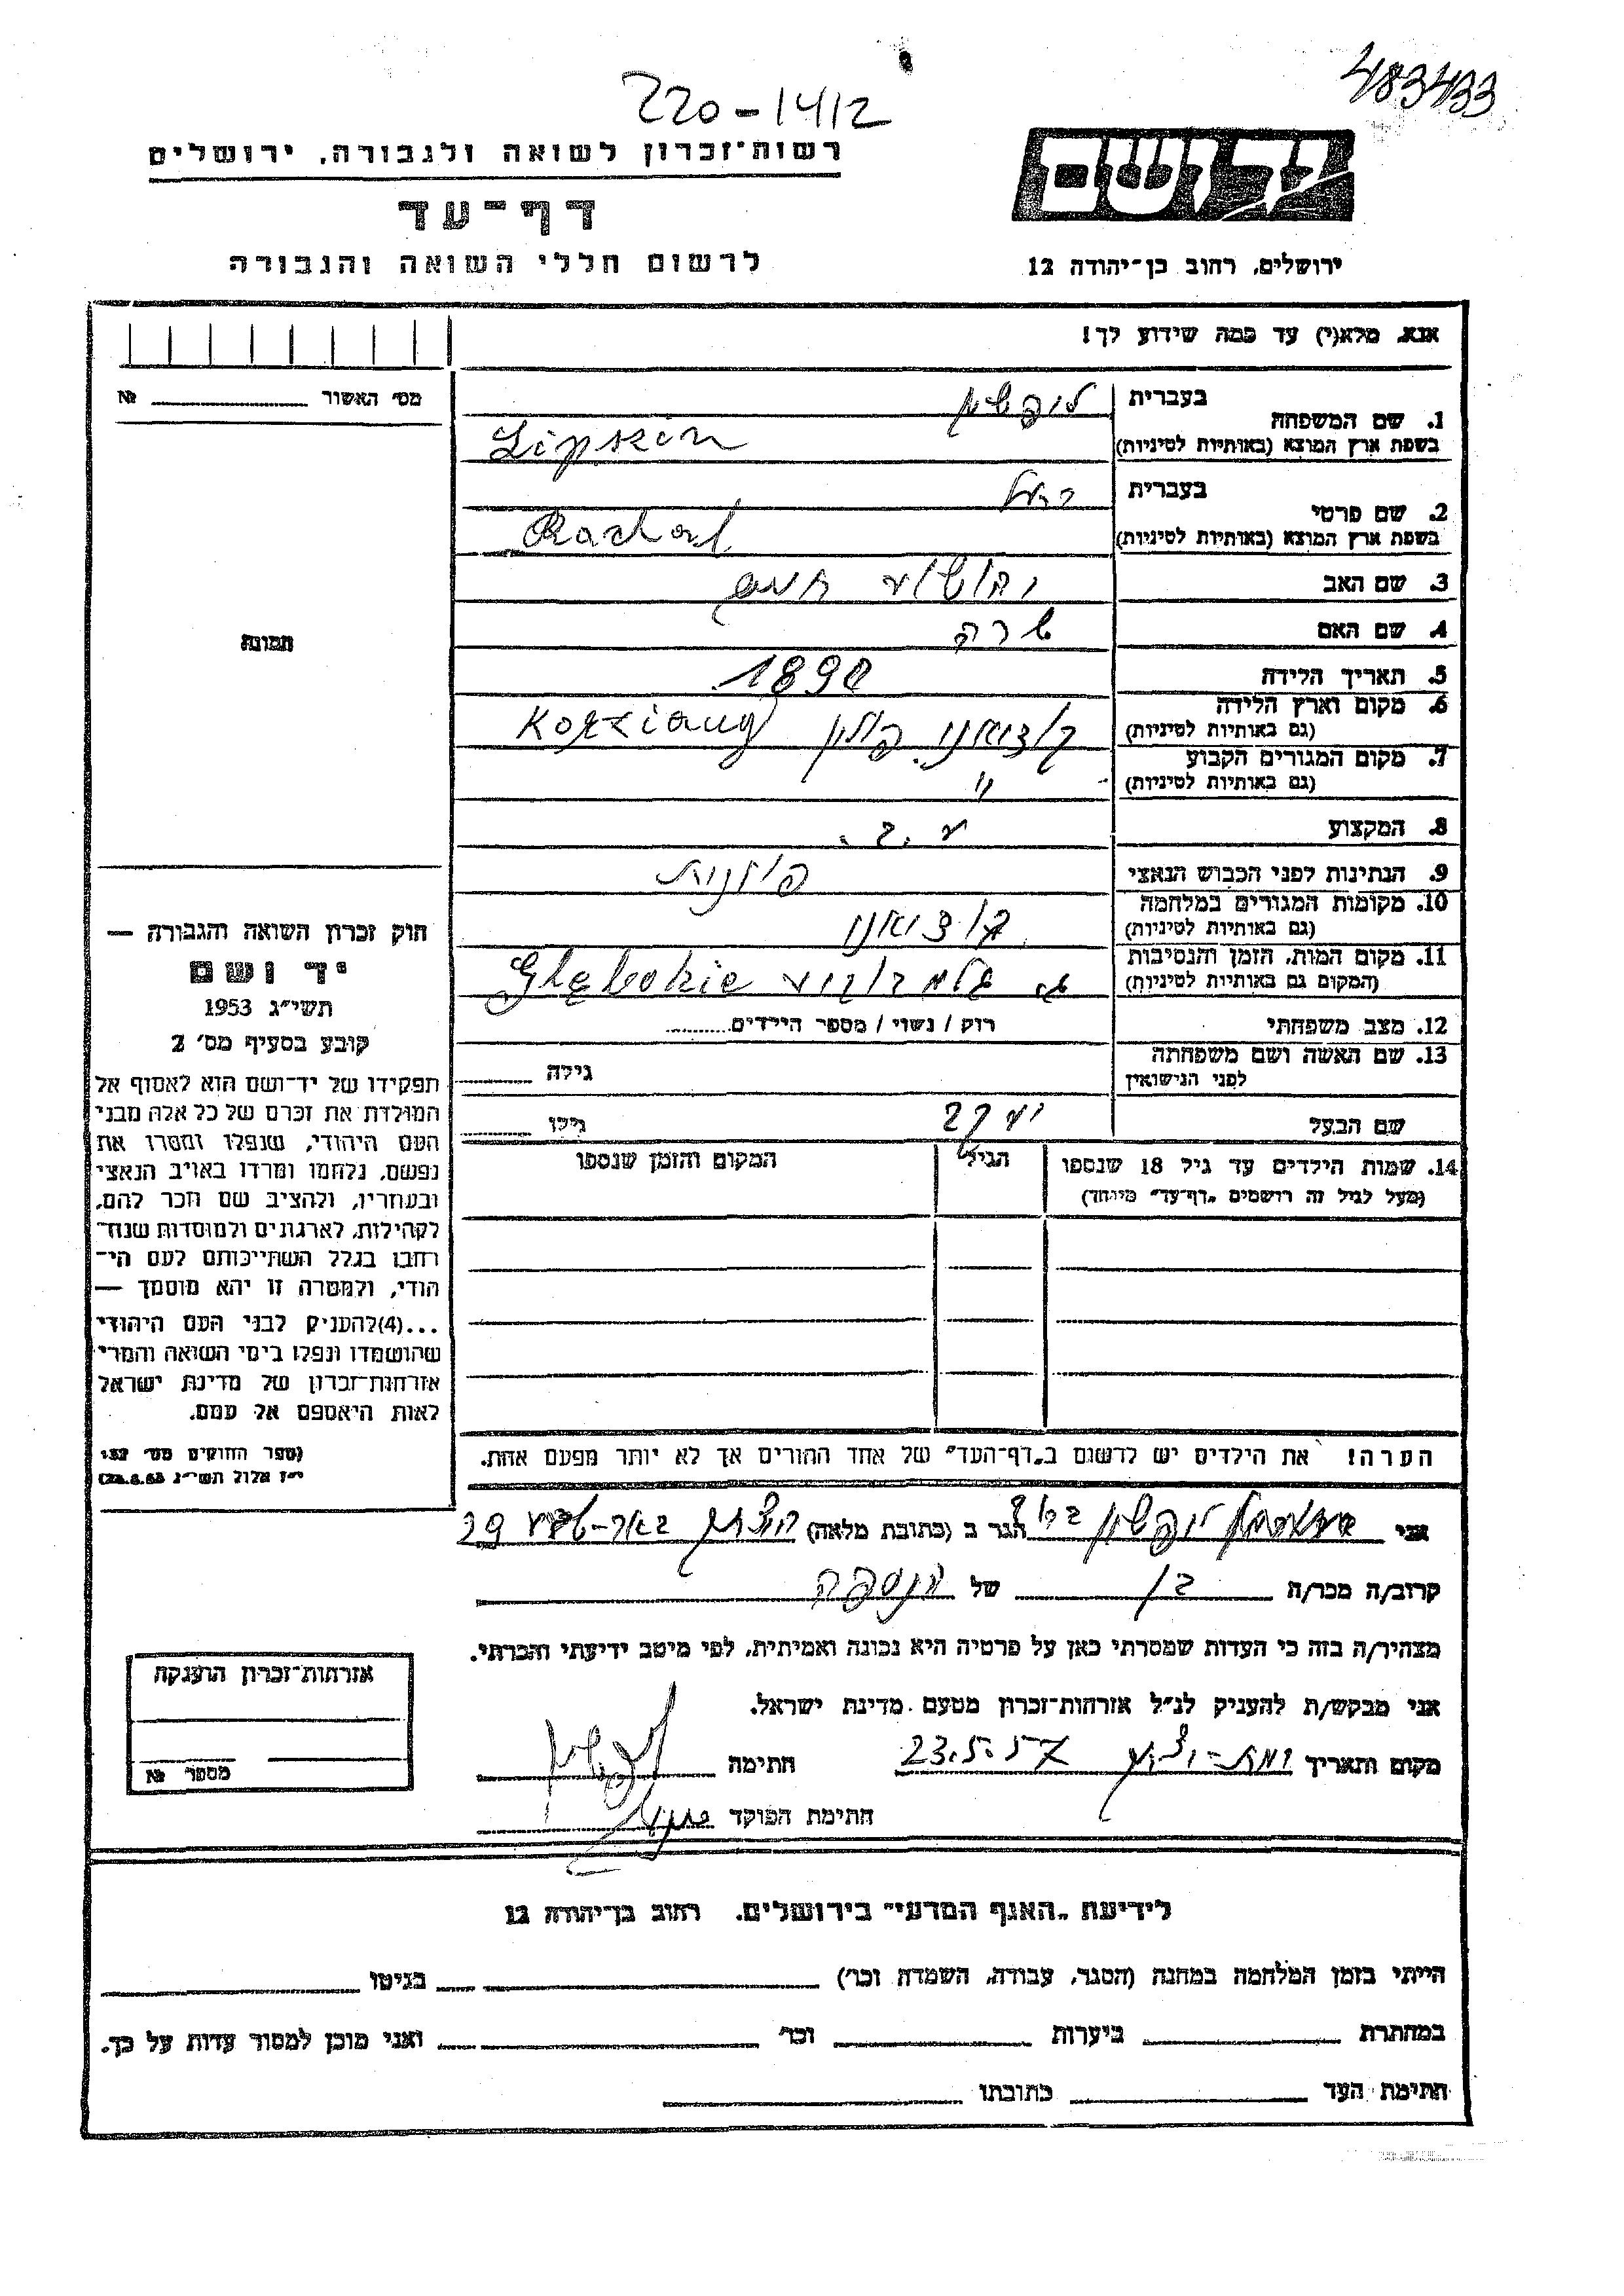 483433
220-1412
יד ושם
רשות־זכרון לשואה ולגבורה, ירושלים
דף־עד
לרשום חללי השואה והגבורה
ירושלים, רחוב בן־יהודה 12
אנא, מלא(י) עד כמה שידוע לך!
מס׳ האשור № 
1. שם המשפחה
בעברית ליפשין
בשפת ארץ המוצא (באותיות לטיניות) Lipskin
2. שם פרטי
בעברית רחל
בשפת ארץ המוצא (באותיות לטיניות) Rachel
3. שם האב יהושוע חיים
4. שם האם שרה
5. תאריך הלידה 1890
6. מקום וארץ הלידה (גם באותיות לטיניות) קוזיאני פולין Kozziany
7. מקום המגורים הקבוע (גם באותיות לטיניות) "
8. המקצוע ע.ב.
9. הנתינות לפני הכבוש הנאצי פולנית
10. מקומות המגורים במלחמה (גם באותיות לטיניות) קוזיאני
11. מקום המות, הזמן והנסיבות (המקום גם באותיות לטיניות) Głębokie
12. מצב משפחתי רוק / נשוי / מספר הילדים
13. שם האשה ושם משפחתה לפני הנישואין גילה
שם הבעל יעקב גילו
14. שמות הילדים עד גיל 18 שנספו (מעל לגיל זה רושמים „דף־עד״ מיוחד)
הגיל
המקום והזמן שנספו
הערה! את הילדים יש לרשום ב„דף־העד״ של אחד ההורים אך לא יותר מפעם אחת.
תמונה
חוק זכרון השואה והגבורה —
יד ושם
תשי״ג 1953
קובע בסעיף מס׳ 2
תפקידו של יד־ושם הוא לאסוף אל
המולדת את זכרם של כל אלה מבני
העם היהודי, שנפלו ומסרו את
נפשם, נלחמו ומרדו באויב הנאצי
ובעוזריו, ולהציב שם וזכר להם,
לקהילות, לארגונים ולמוסדות שנח־
רבו בגלל השתייכותם לעם הי־
הודי, ולמטרה זו יהא מוסמך —
...(4) להעניק לבני העם היהודי
שהושמדו ונפלו בימי השואה והמרי
אזרחות־זכרון של מדינת ישראל
לאות היאספם אל עמם.
(ספר החוקים מס׳ 132,
י״ז אלול תשי״ג 28.8.53)
אני ליפשין הגר ב (כתובת מלאה) באר-שבע 29
קרוב/ה מכר/ה בן של הנספה
מצהיר/ה בזה כי העדות שמסרתי כאן על פרטיה היא נכונה ואמיתית, לפי מיטב ידיעתי והכרתי.
אני מבקש/ת להעניק לנ״ל אזרחות־זכרון מטעם מדינת ישראל.
מקום ותאריך 23.5.57 חתימה
חתימת הפוקד
אזרחות־זכרון הוענקה
מספר №
לידיעת „האגף המדעי״ בירושלים, רחוב בן־יהודה 12
הייתי בזמן המלחמה במחנה (הסגר, עבודה, השמדה וכו׳) בגיטו
במחתרת ביערות וכו׳ ואני מוכן למסור עדות על כך.
חתימת העד כתובתו